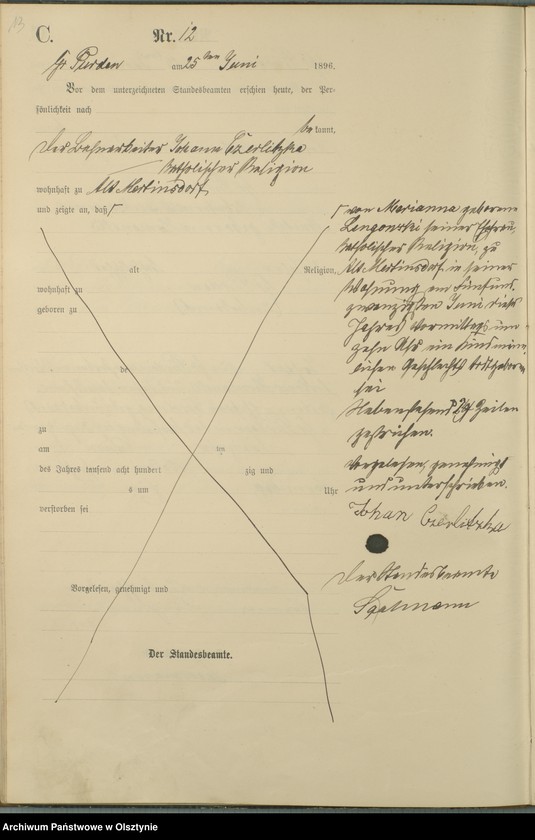 13
C.
Nr. 12
Gr Purden am 25ten Juni 1896.
Vor dem unterzeichneten Standesbeamten erschien heute, der Per-
sönlichkeit nach
bekannt,
der Bahnarbeiter Johann Czerlitzka
katholischer Religion
wohnhaft zu Alt Mertinsdorf
und zeigte an, daß
alt Religion,
wohnhaft zu
geboren zu
de
zu
am ten
des Jahres tausend acht hundert zig und
s um Uhr
verstorben sei
Vorgelesen, genehmigt und
Der Standesbeamte.
von Marianna geborene
Lengowski seiner Ehefrau,
katholischer Religion, zu
Alt Mertinsdorf in seiner
Wohnung am fünfund-
zwanzigsten Juni dieses
Jahres Vormittags um
zehn Uhr ein Kind männ-
lichen Geschlechts todtgeboren
sei
Nebenstehend Zeilen
gestrichen.
Vorgelesen, genehmigt
und unterschrieben.
Johan Czerlitzka
Der Standesbeamte
Archiwum Państwowe w Olsztynie